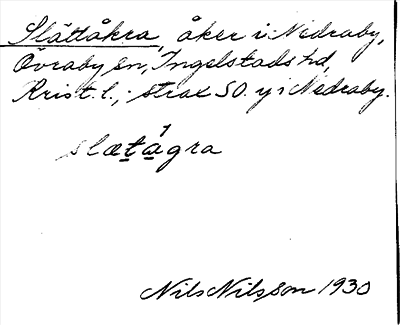 Slättåkra, åker i Nedraby,
Övraby sn, Ingelstads hd,
Krist. l.; strax SO. y i Nedraby.
slætágra
Nils Nilsson 1930